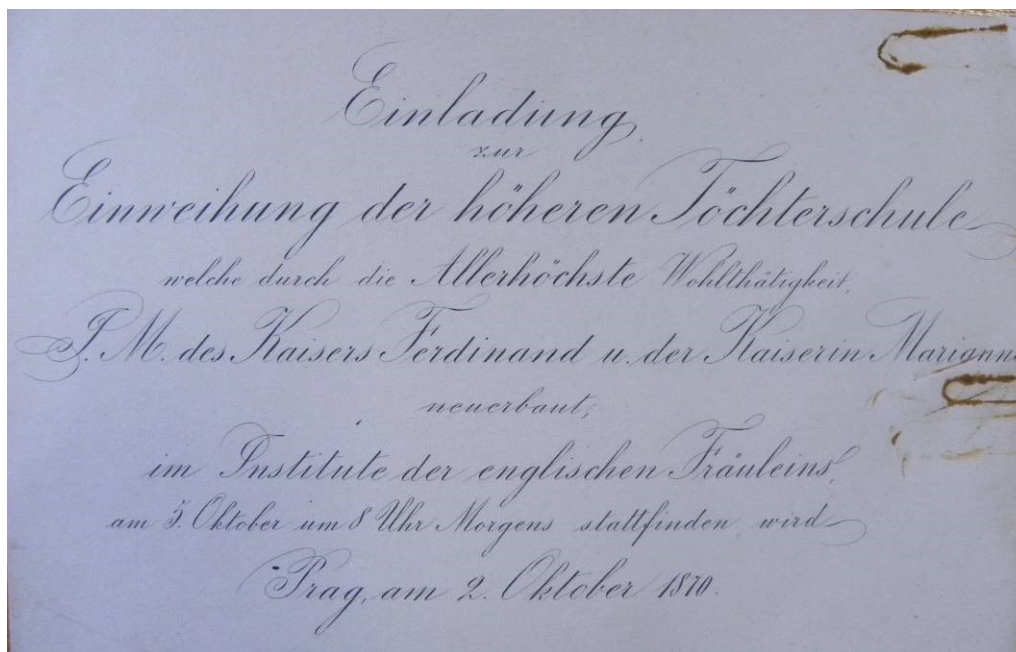 Einladung
zur
Einweihung der höheren Töchterschule
welche durch die Allerhöchste Wohlthätigkeit,
I. M. des Kaisers Ferdinand u. der Kaiserin Marianne
neuerbaut,
im Institute der englischen Fräuleins,
am 5. Oktober um 8 Uhr Morgens stattfinden wird
Prag, am 2. Oktober 1870.